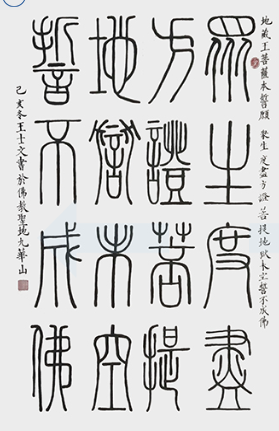 地藏王菩薩本誓願 眾生度盡方證菩提地獄未空誓不成佛
眾生度盡
方證菩提
地獄未空
誓不成佛
己亥冬王士文書於佛教聖地九華山